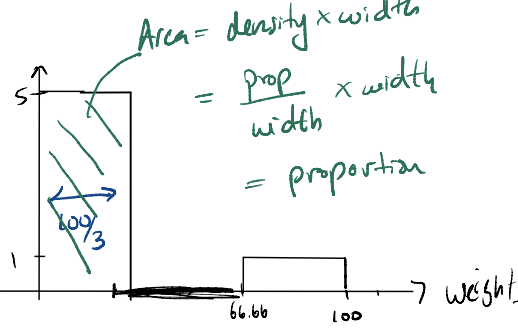 Area = density × width
= prop/width × width
= proportion
5
100/3
1
66.66
100
weight